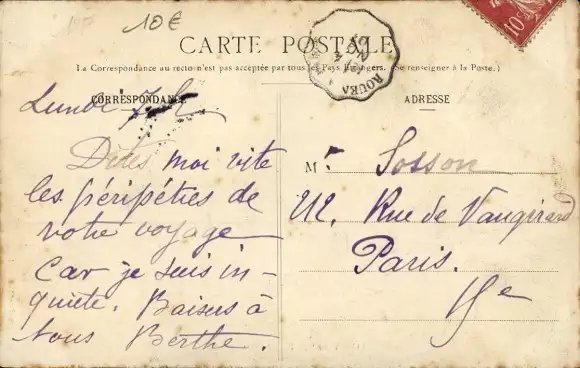 10€
CARTE POSTALE
La Correspondance au recto n'est pas acceptée par tous les Pays Etrangers. (Se renseigner à la Poste.)
CORRESPONDANCE
Lundi 7 h
Dites moi vite
les péripéties de
votre voyage
Car je suis in-
quiète. Baisers à
tous Berthe.
ADRESSE
Mr Sosson
212, Rue de Vaugirard
Paris.
10
ROUBA